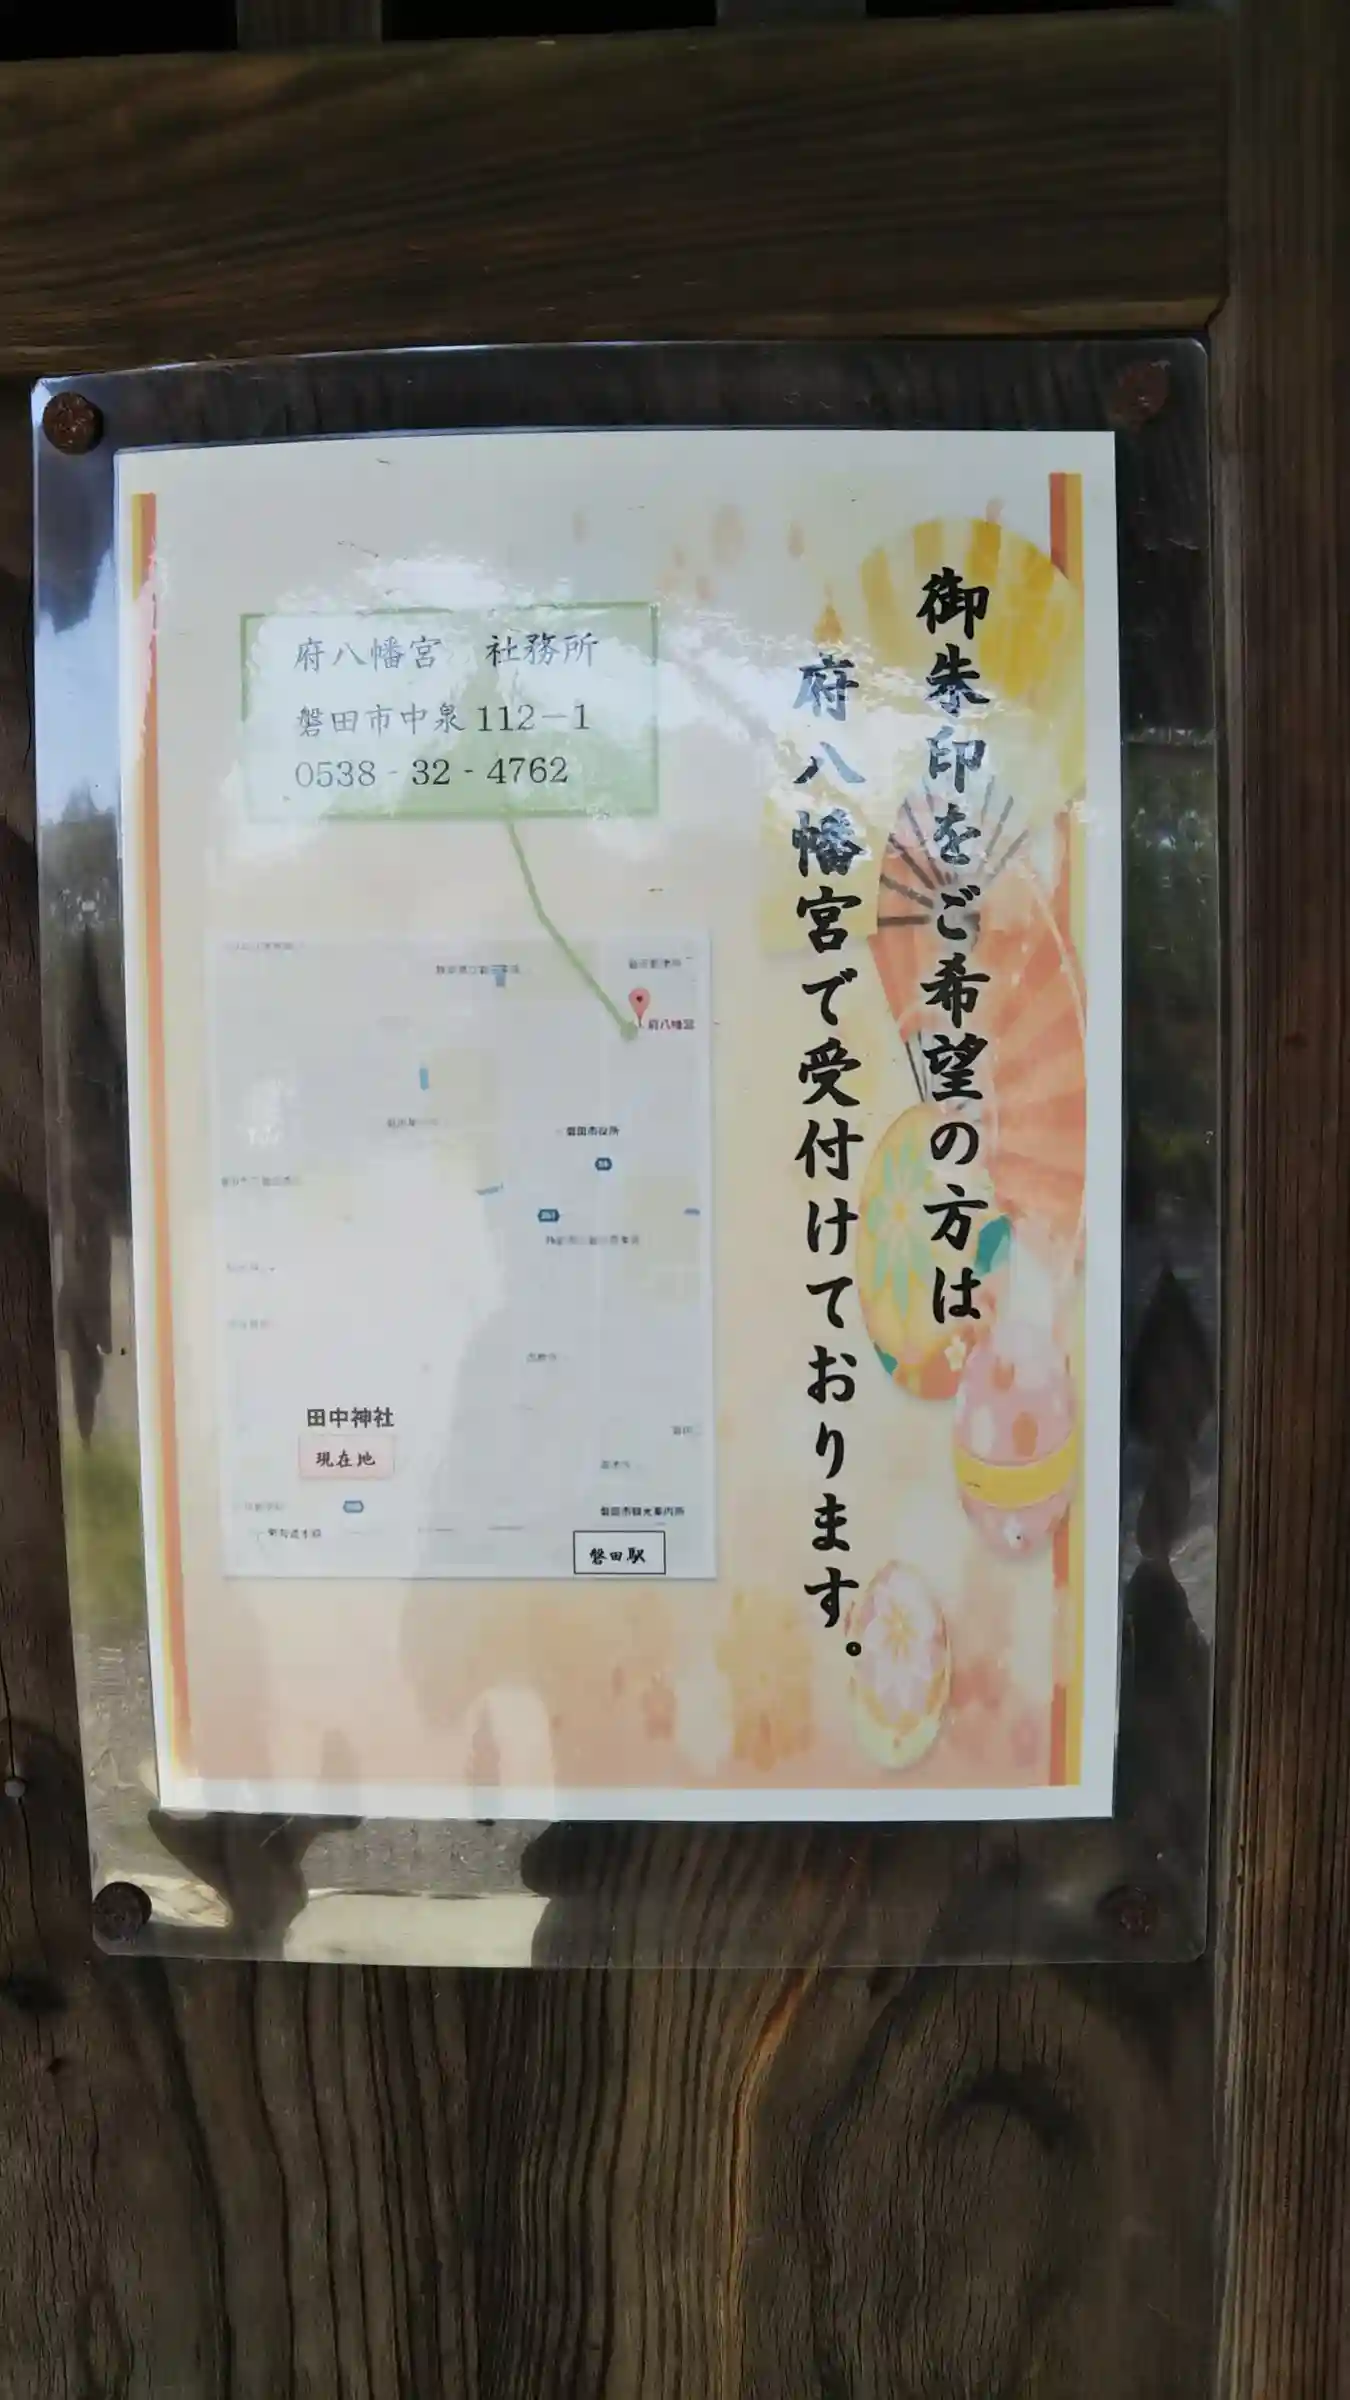 御朱印をご希望の方は
府八幡宮で受付けております。
府八幡宮 社務所
磐田市中泉112－1
0538 - 32 - 4762
府八幡宮
磐田市役所
田中神社
現在地
磐田市観光案内所
磐田駅